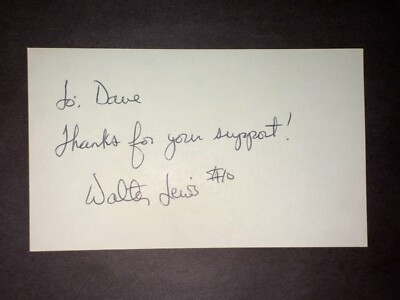 To: Dave
Thanks for your support!
Walter Lewis #10